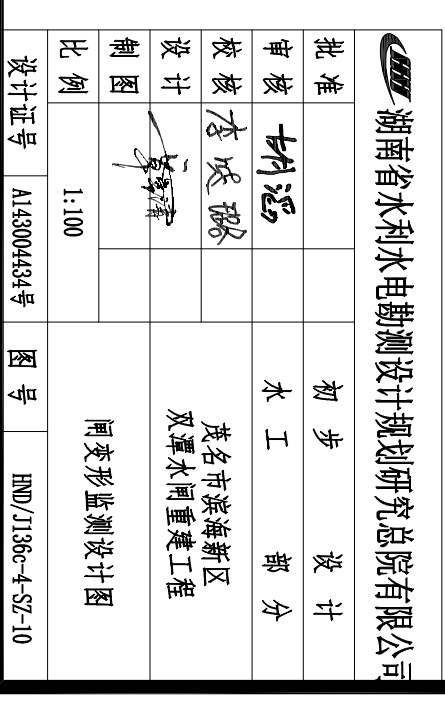 湖南省水利水电勘测设计规划研究总院有限公司
批准
初步 设计
审核
水工 部分
校核
李
设计
茂名市滨海新区
双潭水闸重建工程
制图
比例
1:100
闸变形监测设计图
设计证号
A143004434号
图号
HND/J136c-4-SZ-10